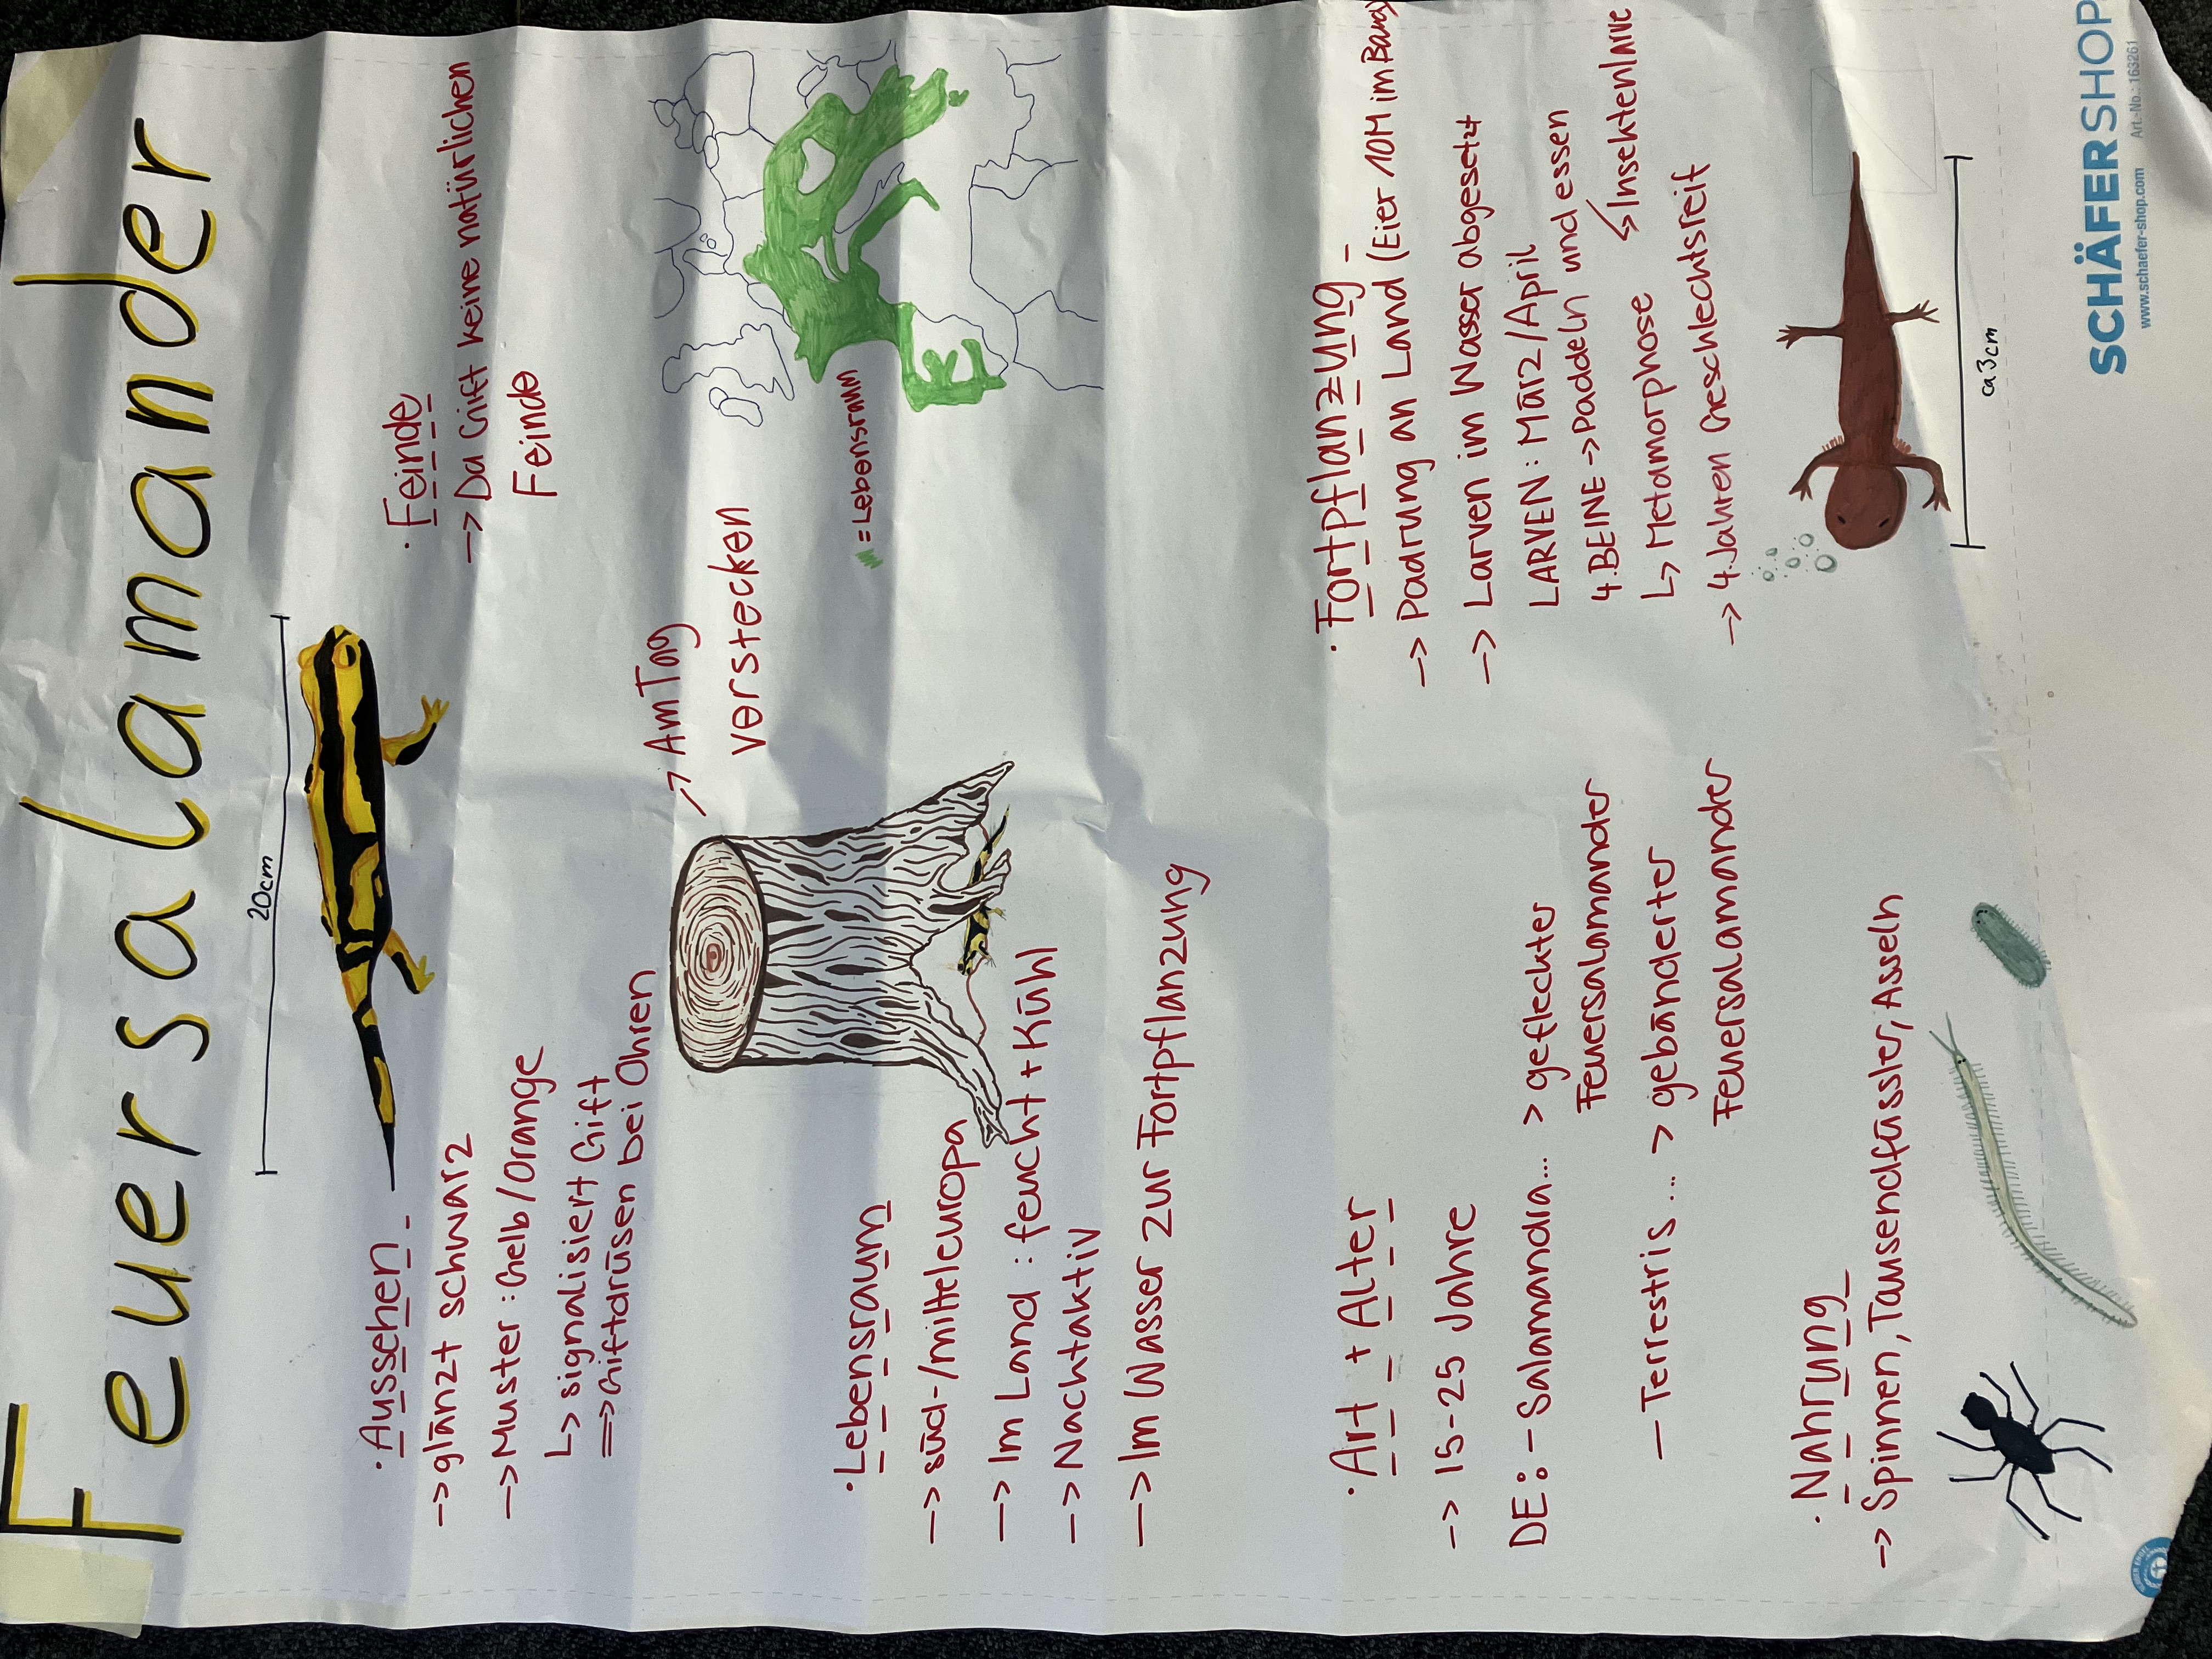 Feuersalamander
20cm
· Aussehen
-> glänzt schwarz
-> Muster: Gelb/Orange
↳ signalisiert Gift
=> Giftdrüsen bei Ohren
· Feinde
-> Da Gift keine natürlichen
Feinde
-> Am Tag
verstecken
= Lebensraum
· Lebensraum
-> süd-/mitteleuropa
-> Im Land: feucht + Kühl
-> Nachtaktiv
-> Im Wasser zur Fortpflanzung
· Art + Alter
-> 15-25 Jahre
DE: - Salamandra... > gefleckter
Feuersalamander
- Terrestris... > gebänderter
Feuersalamander
· Fortpflanzung
-> Paarung an Land (Eier 10M im Bauch)
-> Larven im Wasser abgesetzt
LARVEN: März/April
4.BEINE -> Paddeln und essen
↳ Insektenlarve
↳ Metamorphose
-> 4.Jahren Geschlechtsreif
ca 3cm
· Nahrung
-> Spinnen, Tausendfüssler, Asseln
SCHÄFER SHOP
www.schaefer-shop.com Art.-No.: 163261